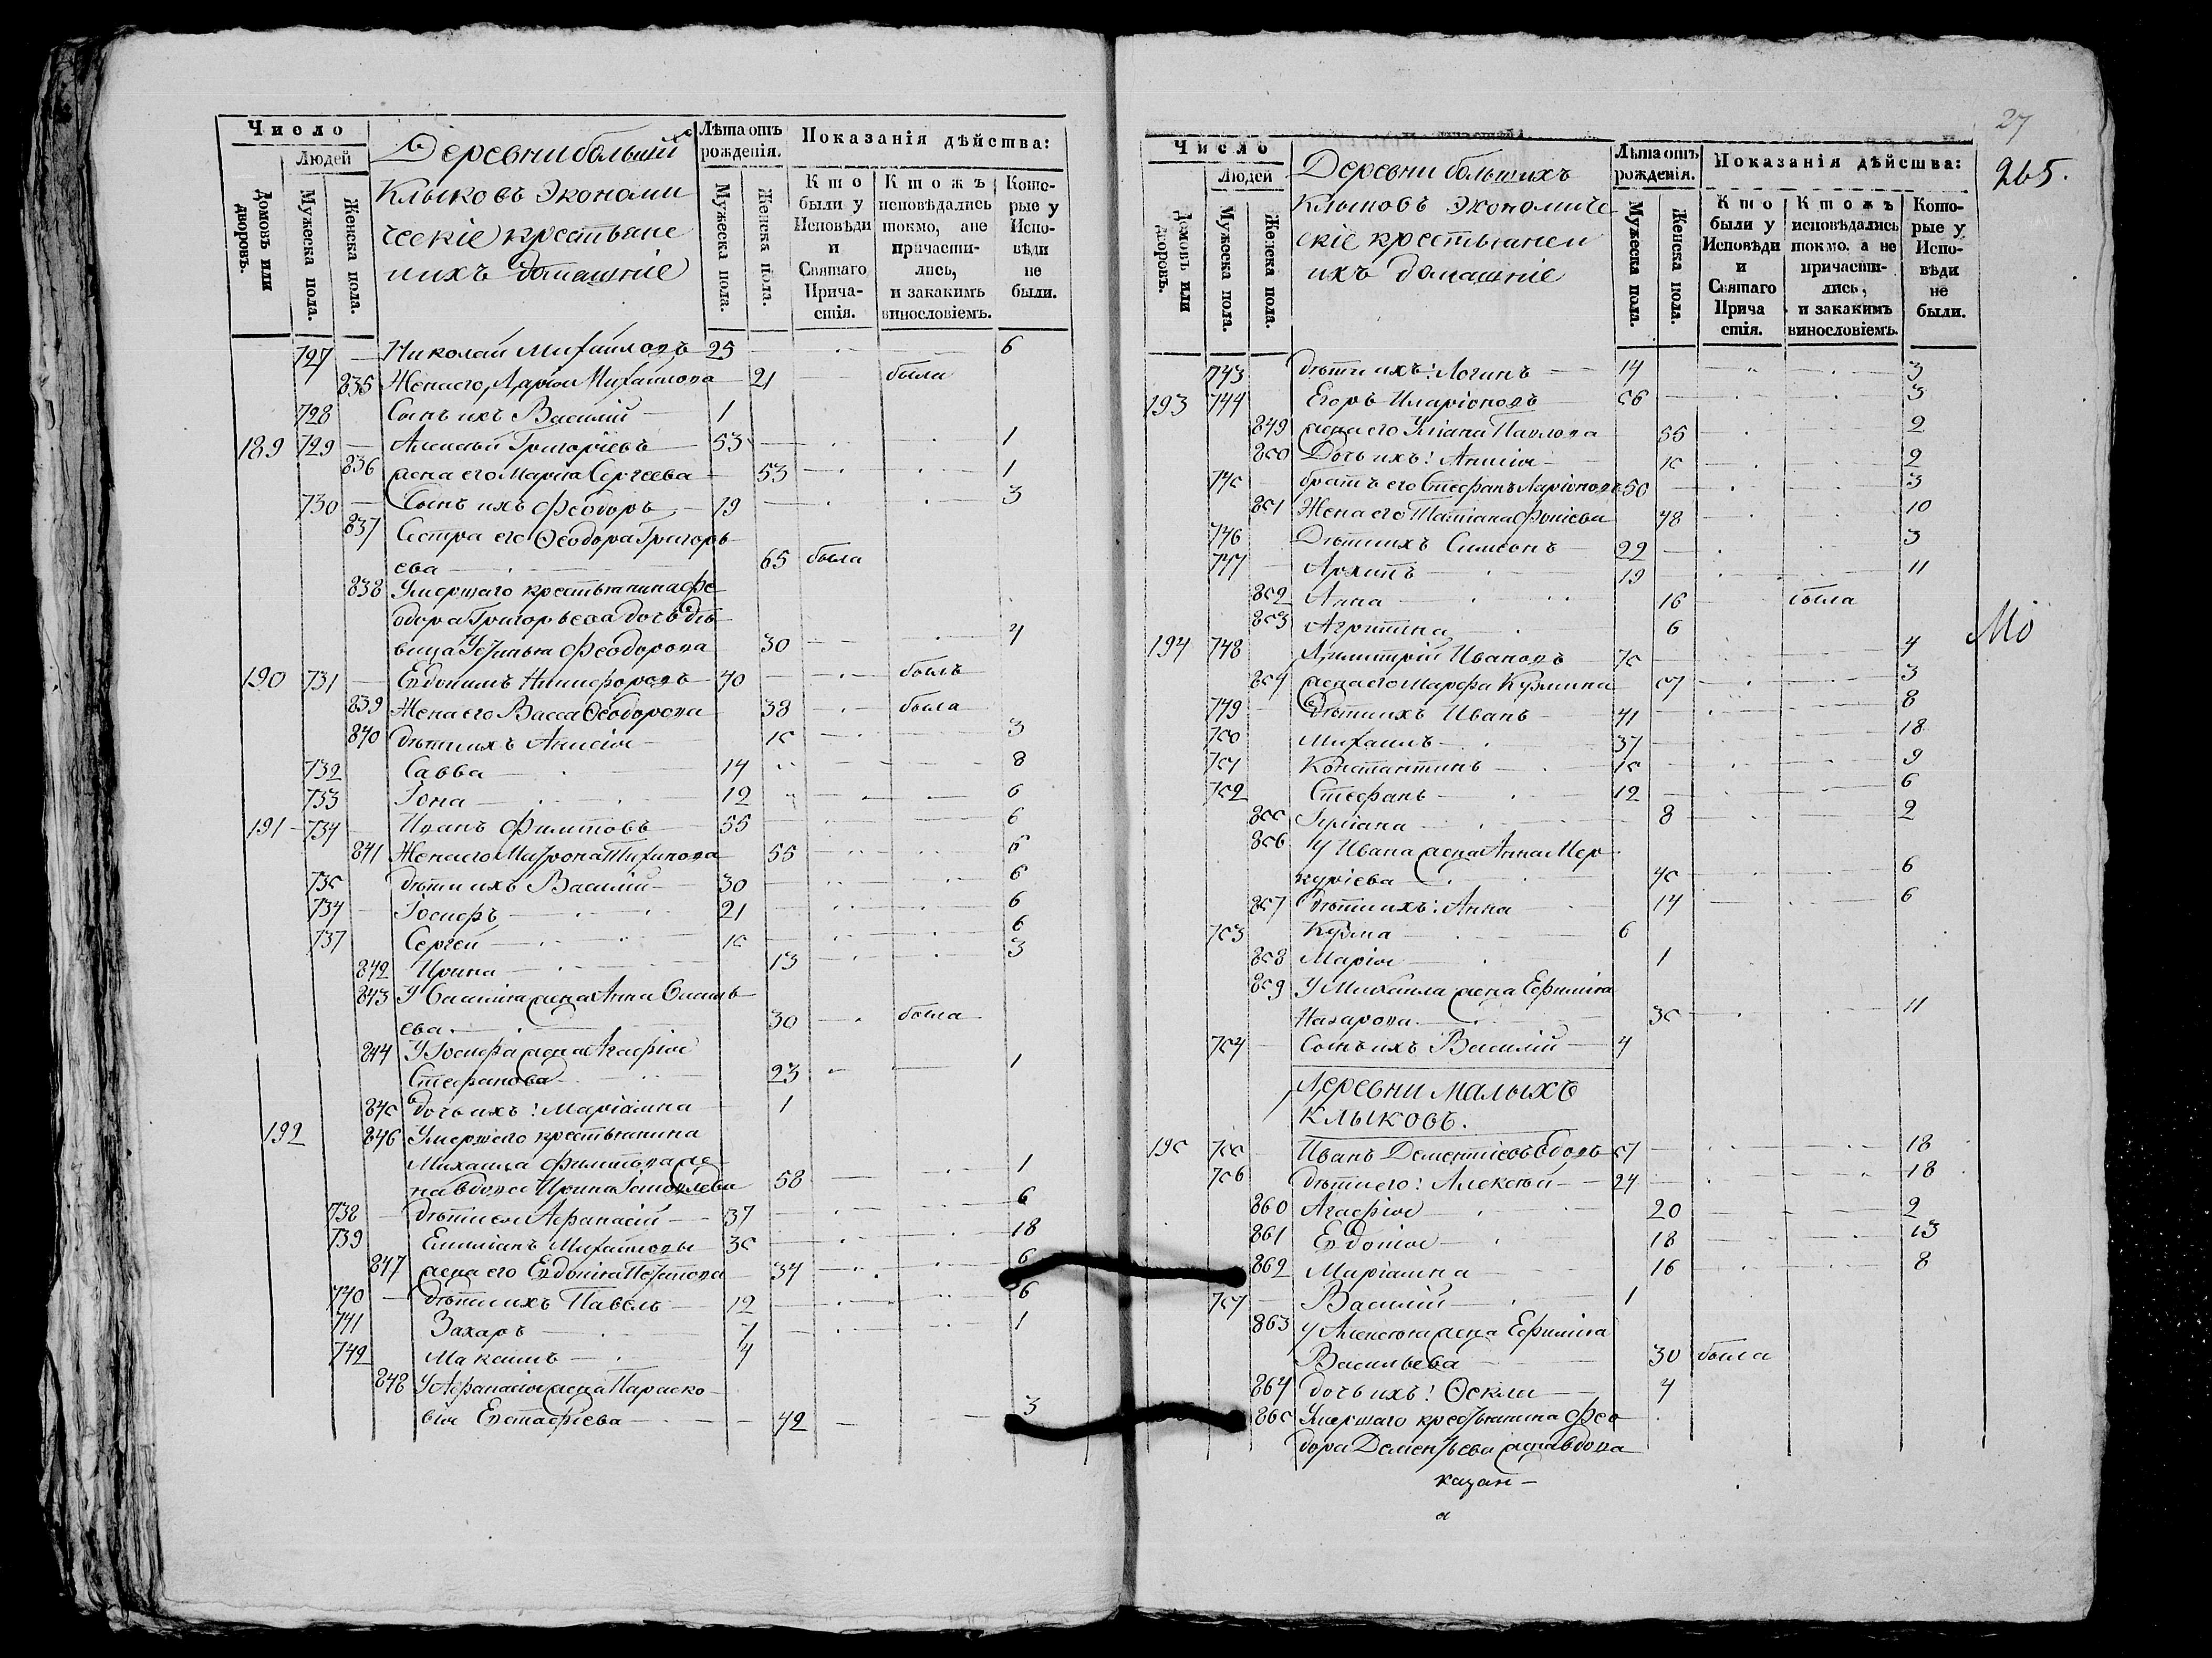 Число
Людей
Домовъ или дворовъ.
Мужеска пола.
Женска пола.
Деревни большихъ
Клыковъ Экономи
ческіе крестьяне
и ихъ домашніе
Лѣта отъ рожденія.
Мужеска пола.
Женска пола.
Показанія дѣйства:
Кто были у Исповѣди и Святаго Причастія.
Ктожъ исповѣдались токмо, а не причастились, и закакимъ винословіемъ.
Которые у Исповѣди не были.
727 Николай Михайловъ 25 6
835 Жена его Дарья Михайлова 21 была
728 Сынъ ихъ Василій 1
189 729 Алексѣй Григоріевъ 53 1
836 жена его Марѳа Сергеева 53 1
730 Сынъ ихъ Феодоръ 19 3
837 Сестра его Ѳеодора Григорь
ева 65 была
838 Умершаго крестьянина Фе
одора Григорьева дочь дѣ
вица Устинья Феодорова 30 4
190 731 Евдокимъ Никифоровъ 40 былъ
839 Жена его Васса Ѳеодорова 38 была
840 дѣти ихъ Анисія 15 3
732 Савва 14 8
733 Іона 12 6
191 734 Иванъ Филиповъ 55 6
841 Жена его Матрона Тихонова 55 6
735 дѣти ихъ Василій 30 6
734 Іосифъ 21 6
737 Сергей 15 6
842 Ирина 13 3
843 У Василія жена Анна Савель
ева 30 была
844 У Іосифа жена Агафія
Стефанова 23 1
845 дочь ихъ: Маріамна 1
192 846 Умершаго крестьянина
Михаила Филипова же
на вдова Ирина Іаковлева 58 1
738 дѣти ея Афанасій 37 6
739 Емиліанъ Михайловы 35 18
847 жена его Евдокія Потапова 34 6
740 дѣти ихъ Павелъ 12 6
741 Захаръ 7 1
742 Максимъ 4
848 У Афанасія жена Параско
вія Евстафіева 42 3
27
265.
Число
Людей
Домовъ или дворовъ.
Мужеска пола.
Женска пола.
Деревни большихъ
Клыковъ экономиче
скіе крестьяне и
ихъ домашніе
Лѣта отъ рожденія.
Мужеска пола.
Женска пола.
Показанія дѣйства:
Кто были у Исповѣди и Святаго Причастія.
Ктожъ исповѣдались токмо, а не причастились, и закакимъ винословіемъ.
Которые у Исповѣди не были.
743 дѣти ихъ: Логинъ 14 3
193 744 Егоръ Иларіоновъ 56 3
849 жена его Уліана Павлова 55 2
850 Дочь ихъ: Анисія 15 2
745 братъ его Стефанъ Ларіоновъ 50 3
851 Жена его Татіана Фокіева 48 10
746 Дѣти ихъ Симеонъ 22 3
747 Архипъ 19 11
852 Анна 16 была
853 Агрипина 6
194 748 Димитрій Ивановъ 75 4
854 жена его Марфа Кузмина 57 3
749 дѣти ихъ Иванъ 41 8
750 Михаилъ 37 18
751 Константинъ 15 9
752 Стефанъ 12 6
855 Іуліана 8 2
856 У Ивана жена Анна Мер
куріева 45 6
857 дѣти ихъ: Анна 14 6
753 Кузма 6
858 Марія 1
859 У Михаила жена Ефимія
Назарова 35 11
754 Сынъ ихъ Василій 4
Деревни малыхъ
Клыковъ.
195 755 Иванъ Дементіевъ вдовъ 57 18
756 дѣти его: Алексѣй 24 18
860 Агафія 20 2
861 Евдокія 18 13
862 Маріамна 16 8
757 Василій 1
863 У Алексея жена Ефимія
Васильева 30 была
864 дочь ихъ: Ѳекла 4
865 Умершаго крестьянина Фео
дора Дементьева жена вдова